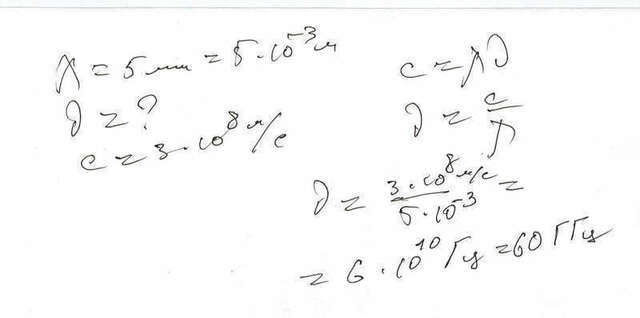 λ = 5 мм = 5·10⁻³ м
ν = ?
c = 3·10⁸ м/с
c = λν
ν = c/λ
ν = 3·10⁸ м/с / 5·10⁻³ =
= 6·10¹⁰ Гц = 60 ГГц